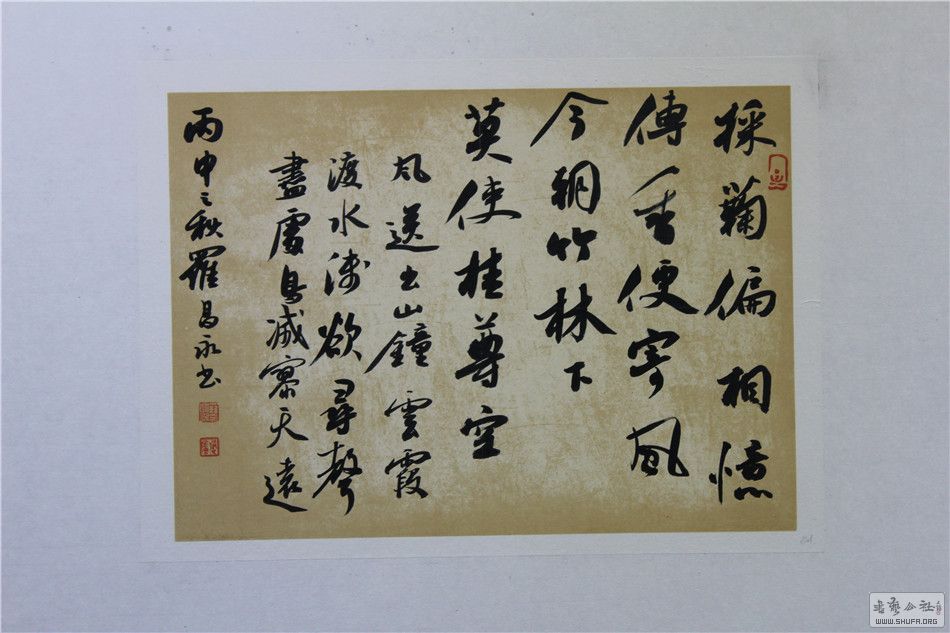 採菊偏相憶
傳香便寄風
今朝竹林下
莫使桂尊空
風送出山鐘雲霞
渡水淺欲尋聲
盡處鳥滅寥天遠
丙申之秋羅昌永書
書藝公社
WWW.SHUFA.ORG